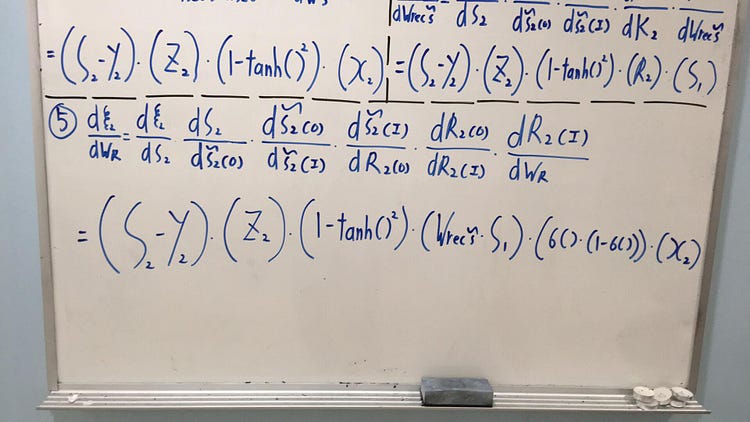 dWrecs̃ dS₂ dS̃₂(O) dS̃₂(I) dK₂ dWrecs̃
=(S₂-Y₂)·(Z₂)·(1-tanh()²)·(X₂) =(S₂-Y₂)·(Z₂)·(1-tanh()²)·(R₂)·(S₁)
⑤ dξ₂/dWR = dξ₂/dS₂ · dS₂/dS̃₂(O) · dS̃₂(O)/dS̃₂(I) · dS̃₂(I)/dR₂(O) · dR₂(O)/dR₂(I) · dR₂(I)/dWR
=(S₂-Y₂)·(Z₂)·(1-tanh()²)·(Wrecs̃·S₁)·(6()·(1-6()))·(X₂)